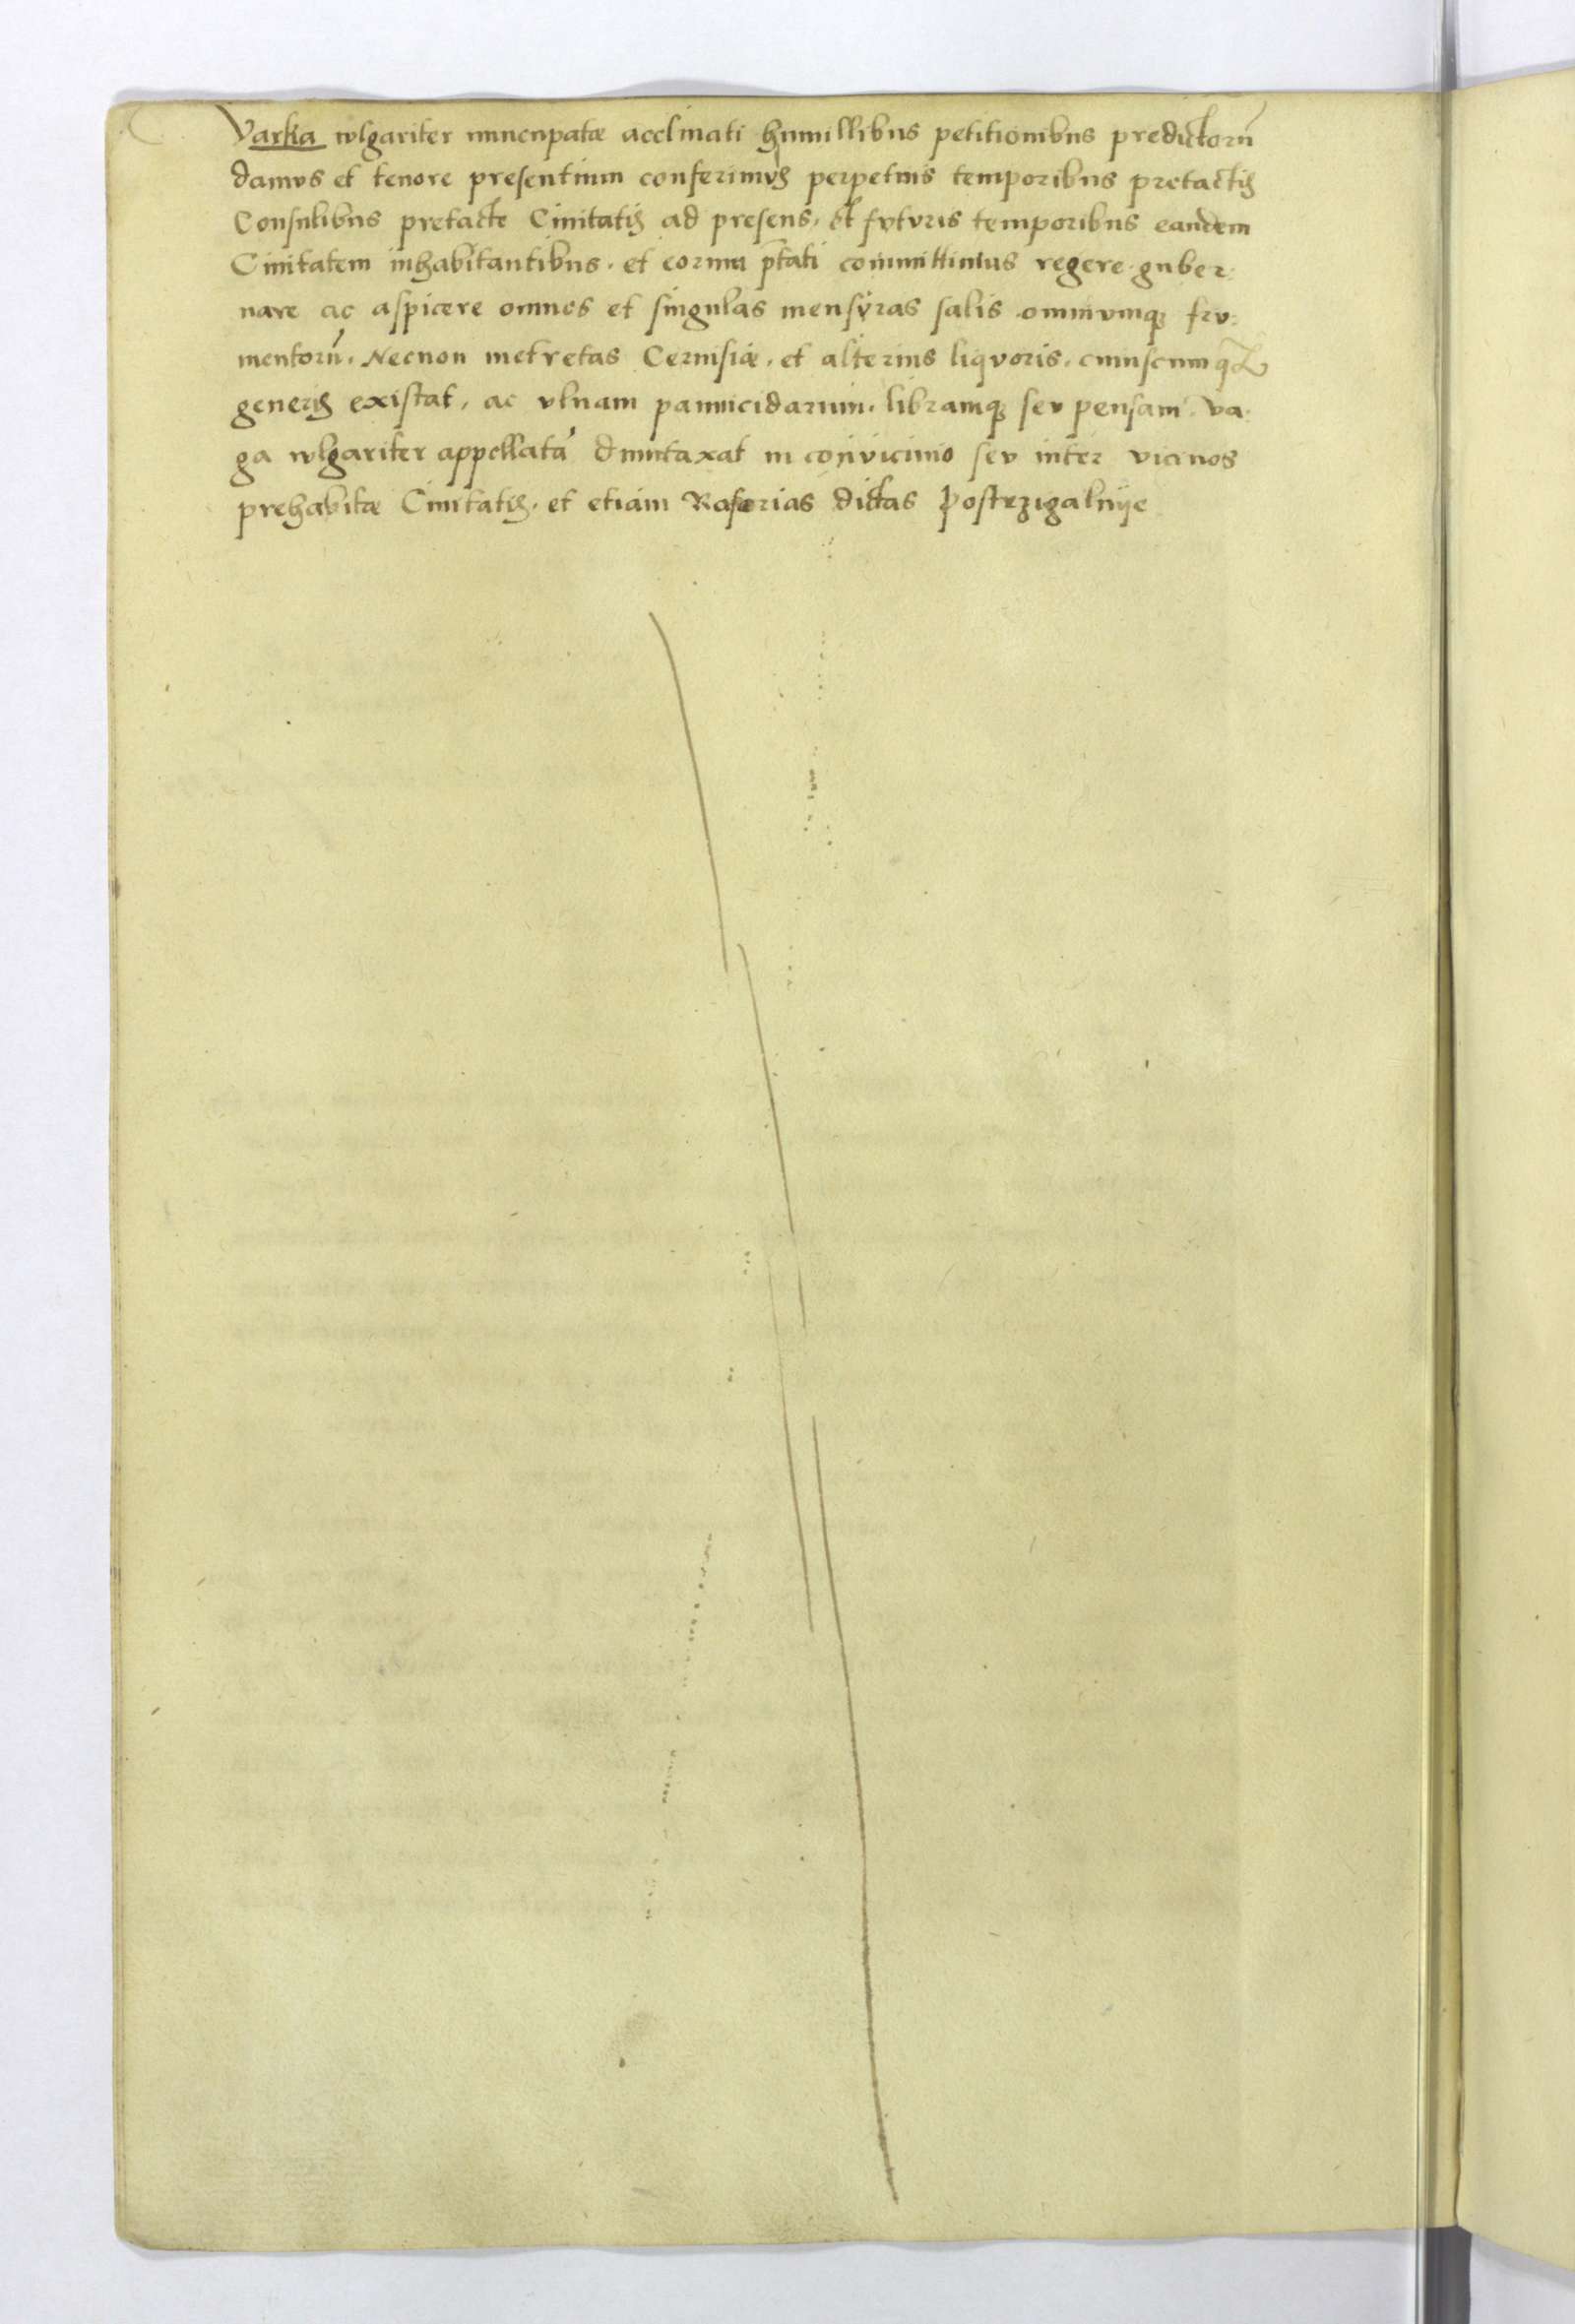 Varka wlgariter nuncupatæ acclinati humillibus petitionibus predictorũ
damus et tenore presentium conferimus perpetuis temporibus pretactis
Consulibus pretacte Ciuitatis ad presens, et futuris temporibus eandem
Ciuitatem inhabitantibus. et eorum ptãti committimus regere. guber:
nare ac aspicere omnes et singulas mensuras salis omniumq; fru:
mentorũ. Necnon metretas Ceruisiæ. et alterius liquoris. cuiuscumq;
generis existat, ac vlnam pannicidarum. libramq; seu pensam. va:
ga wlgariter appellatã dumtaxat in conuicinio seu inter vicinos
prehabitæ Ciuitatis. et etiam Rasorias dictas postrzigalnije